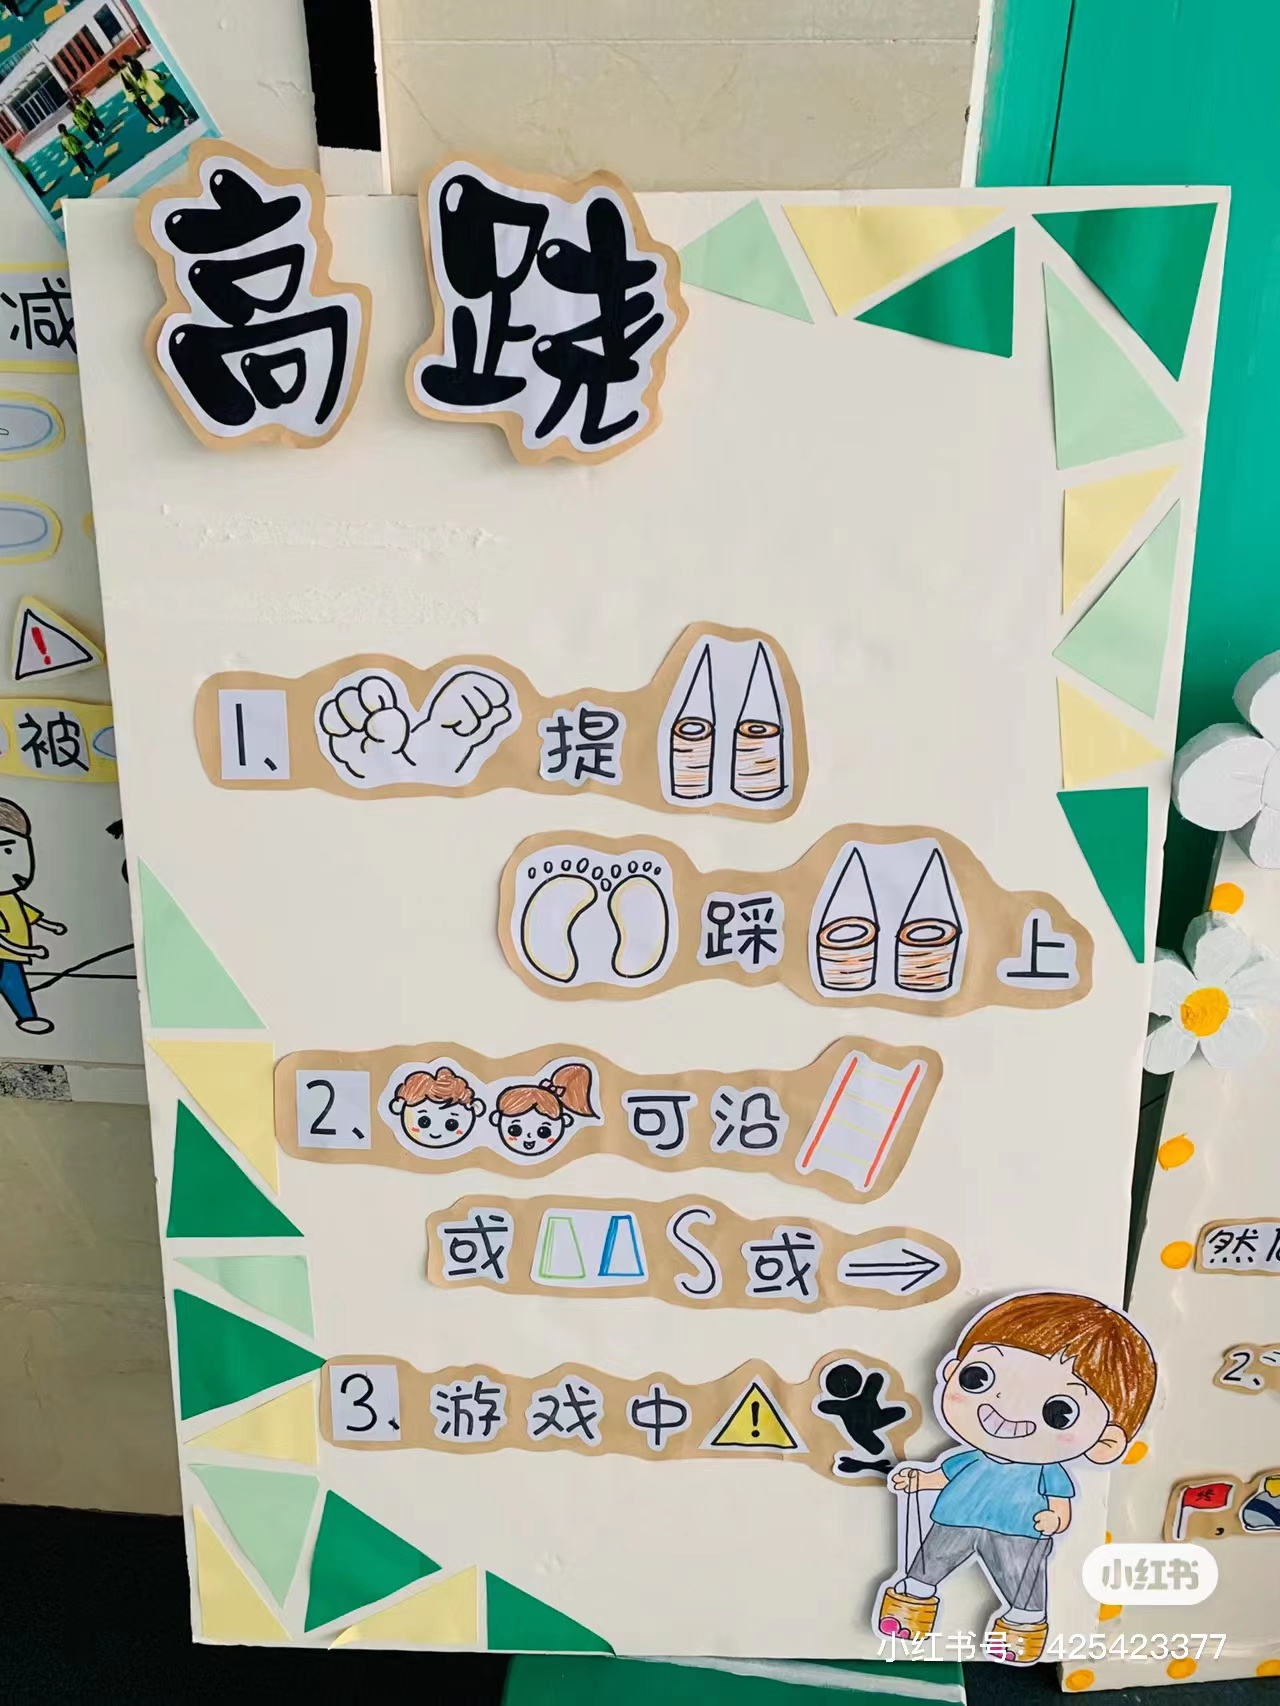 高跷
减
被
1、提
踩上
2、可沿
或S或
3、游戏中
然后
2、
小红书
小红书号：425423377